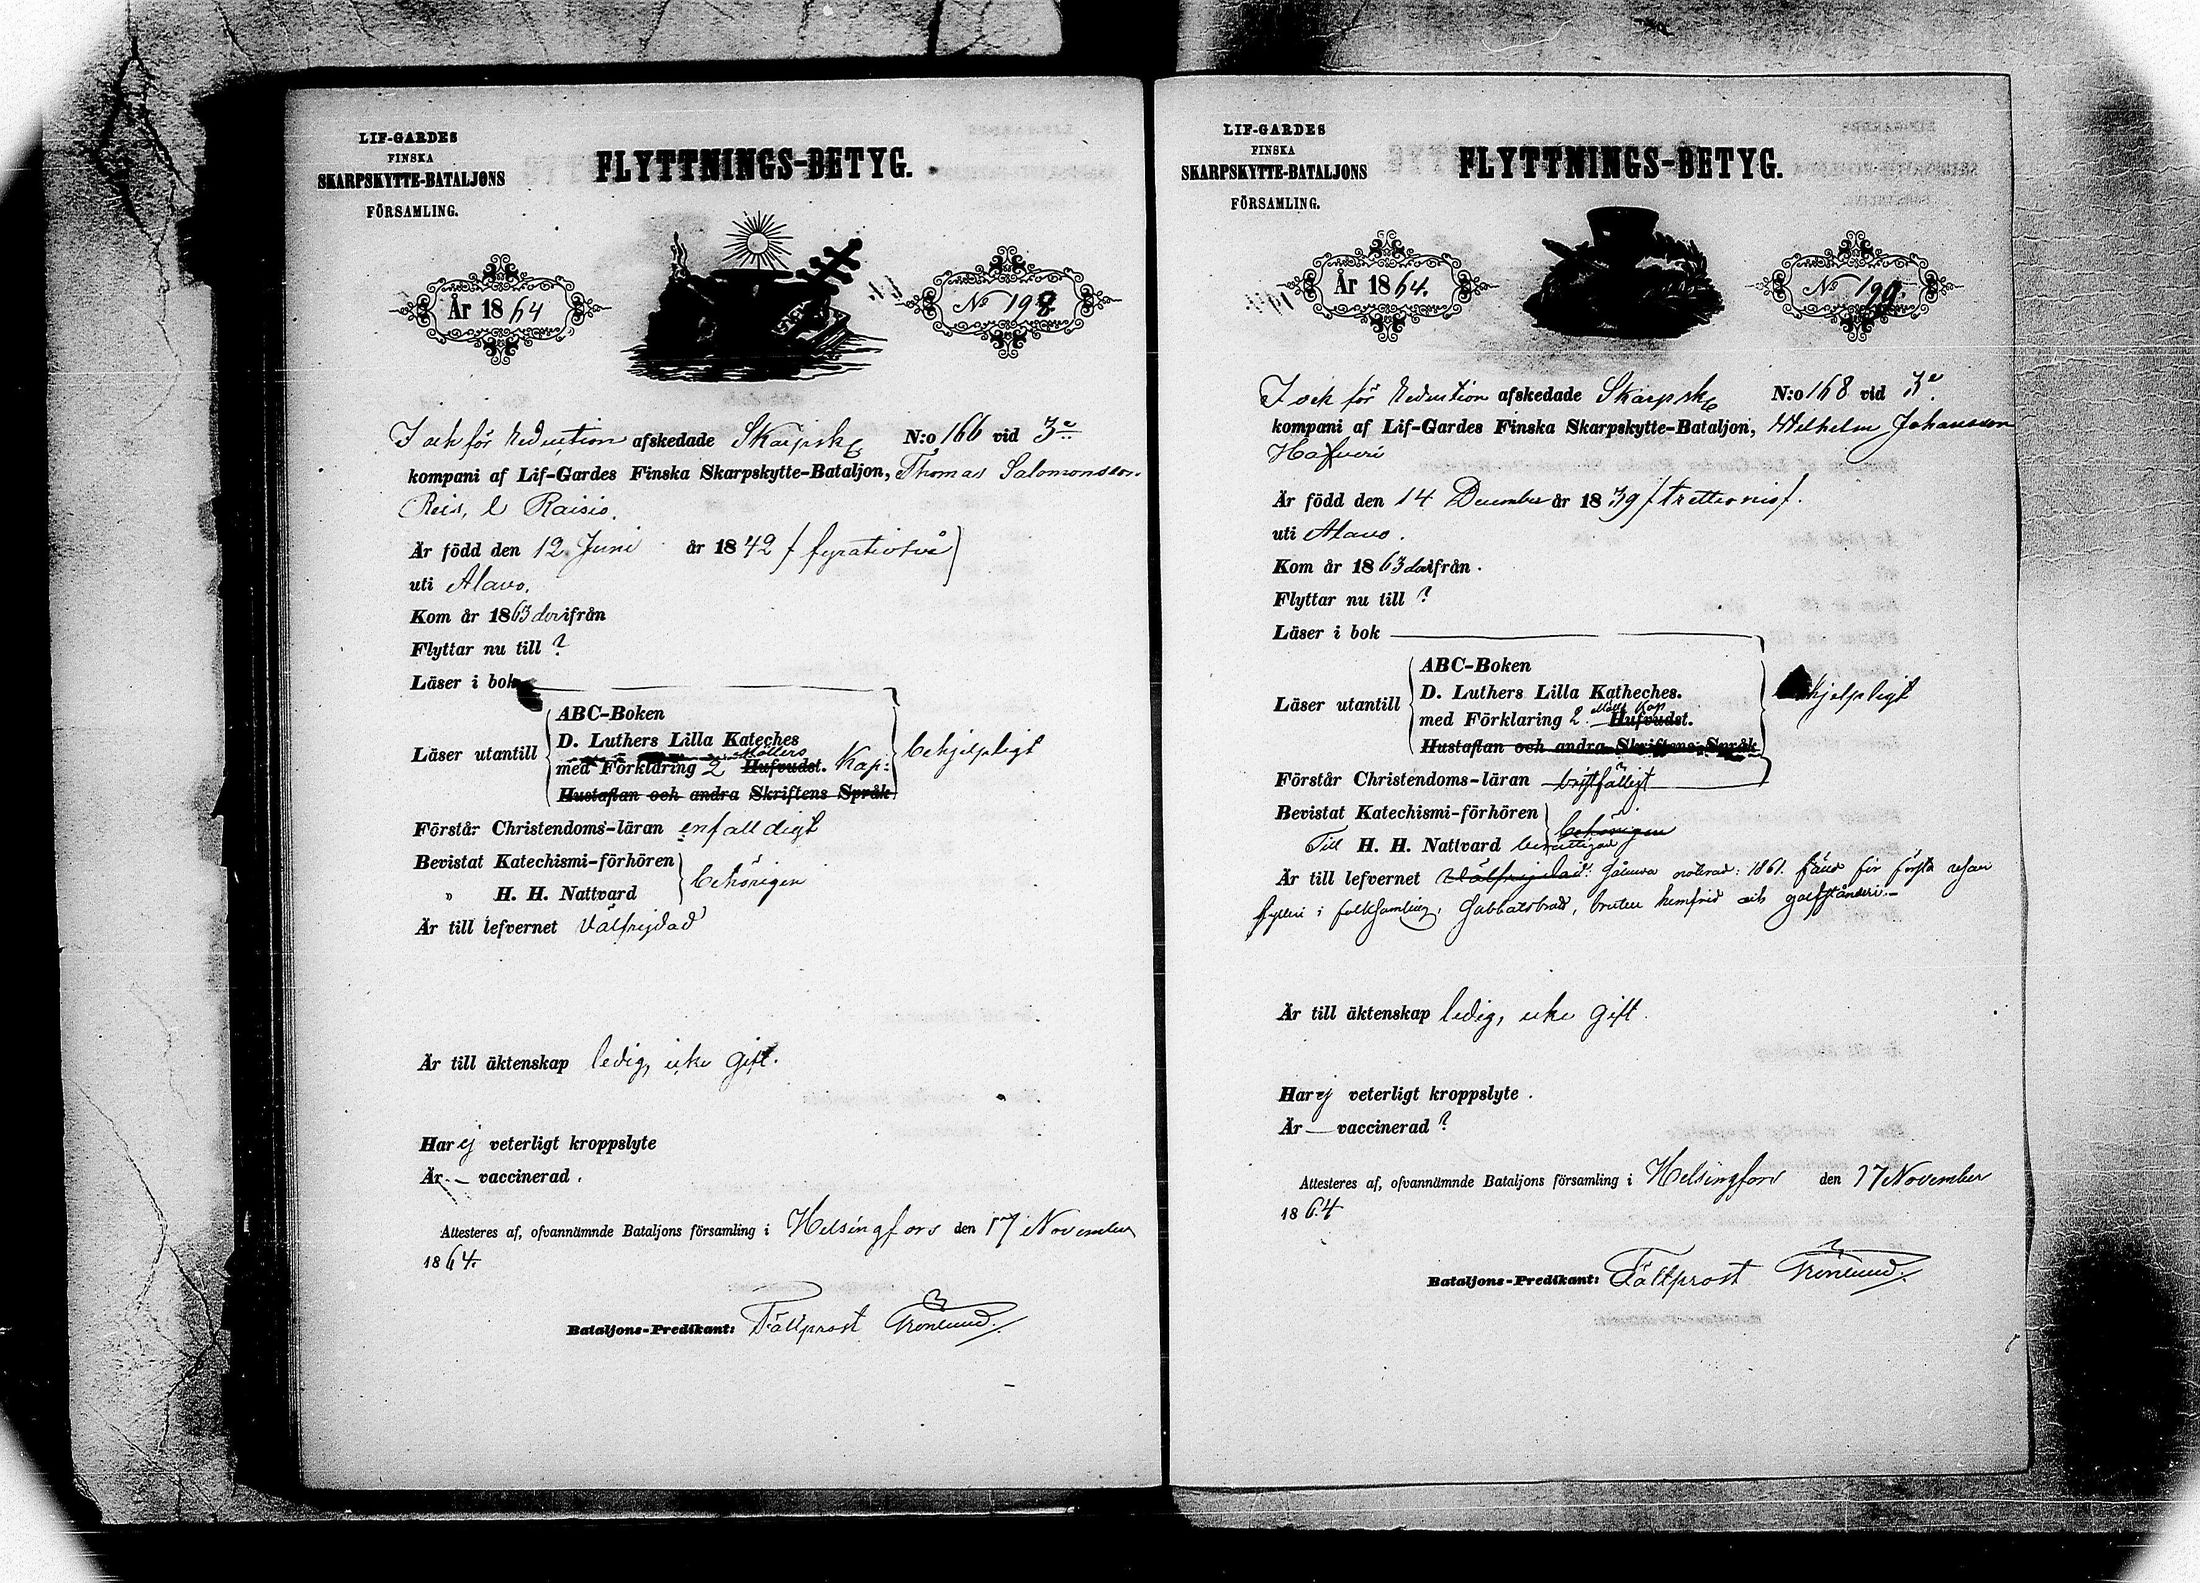 LIF-GARDES
FINSKA
SKARPSKYTTE-BATALJONS
FÖRSAMLING.
FLYTTNINGS-BETYG.
År 1864
No 198
och för Reduction afskedade Skarpsk N:o 166 vid 3e
kompani af Lif-Gardes Finska Skarpskytte-Bataljon, Thomas Salomonsson
Reis, l Raisio.
Är född den 12 Juni år 1842 / fyratiotvå /
uti Alavo.
Kom år 1863 derifrån
Flyttar nu till ?
Läser i bok
ABC-Boken
D. Luthers Lilla Kateches
Läser utantill med Förklaring 2 Möllers Hufvudst. Kap: behjelpligt
Hustaflan och andra Skriftens Språk
Förstår Christendoms-läran enfalldigt
Bevistat Katechismi-förhören
" H. H. Nattvard behörigen
Är till lefvernet Välfrejdad
Är till äktenskap ledig, icke gift.
Har ej veterligt kroppslyte
Är — vaccinerad.
Attesteres af, ofvannämnde Bataljons församling i Helsingfors den 17 November
1864.
Bataljons-Predikant: Fältprost Grönlund.
LIF-GARDES
FINSKA
SKARPSKYTTE-BATALJONS
FÖRSAMLING.
FLYTTNINGS-BETYG.
År 1864.
No
och för Reduction afskedade Skarpsk N:o 168 vid 3e
kompani af Lif-Gardes Finska Skarpskytte-Bataljon, Wilhelm Johansson
Är född den 14 December år 1839 / trettionio /.
uti Alavo.
Kom år 1863 derifrån.
Flyttar nu till ?
Läser i bok
ABC-Boken
D. Luthers Lilla Katheches.
Läser utantill med Förklaring 2. Möll. Kap Hufvudst. behjelpligt
Hustaflan och andra Skriftens Språk
Förstår Christendoms-läran bristfälligt
Bevistat Katechismi-förhören behörigen
Till H. H. Nattvard berättigad
Är till lefvernet Välfrejdad: 1861. för första resan
fylleri i folksamling, Sabbatsbrott, bruten hemfrid och
Är till äktenskap ledig, icke gift.
Har ej veterligt kroppslyte.
Är — vaccinerad ?
Attesteres af, ofvannämnde Bataljons församling i Helsingfors den 17 November
1864
Bataljons-Predikant: Fältprost Grönlund.